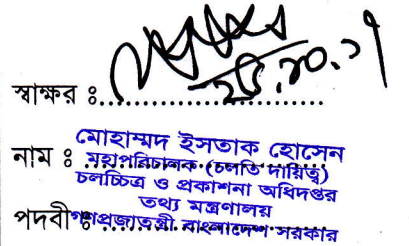 স্বাক্ষর ঃ
২৫.১০.১৭
নাম ঃ মোহাম্মদ ইসতাক হোসেন
মহাপরিচালক (চলতি দায়িত্ব)
চলচ্চিত্র ও প্রকাশনা অধিদপ্তর
তথ্য মন্ত্রণালয়
পদবীঃ গণপ্রজাতন্ত্রী বাংলাদেশ সরকার